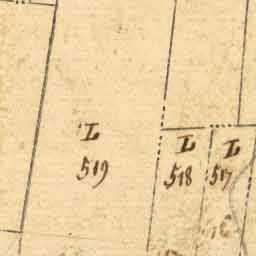 L
519
L
518
L
517